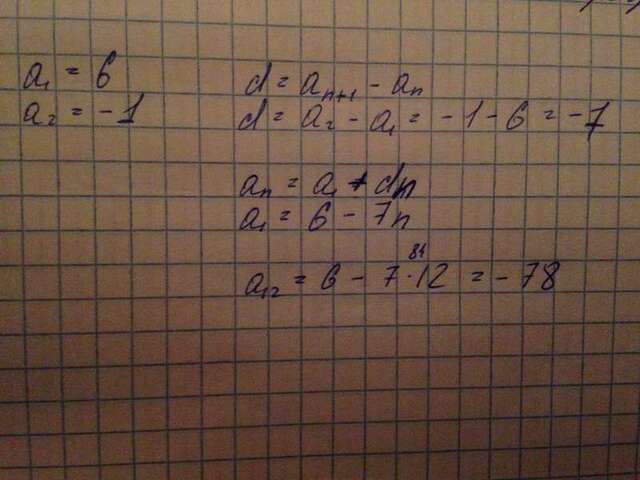 a₁ = 6
a₂ = -1
d = aₙ₊₁ - aₙ
d = a₂ - a₁ = -1 - 6 = -7
aₙ = a₁ + dn
a₁ = 6 - 7n
84
a₁₂ = 6 - 7·12 = -78